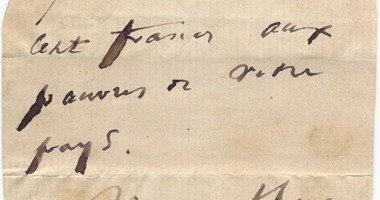 cent francs aux
pauvres de votre
pays.